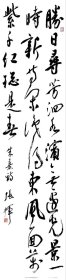 勝日尋芳泗水濱無邊光景一
時新等閒識得東風面萬
紫千紅總是春 朱熹詩 張